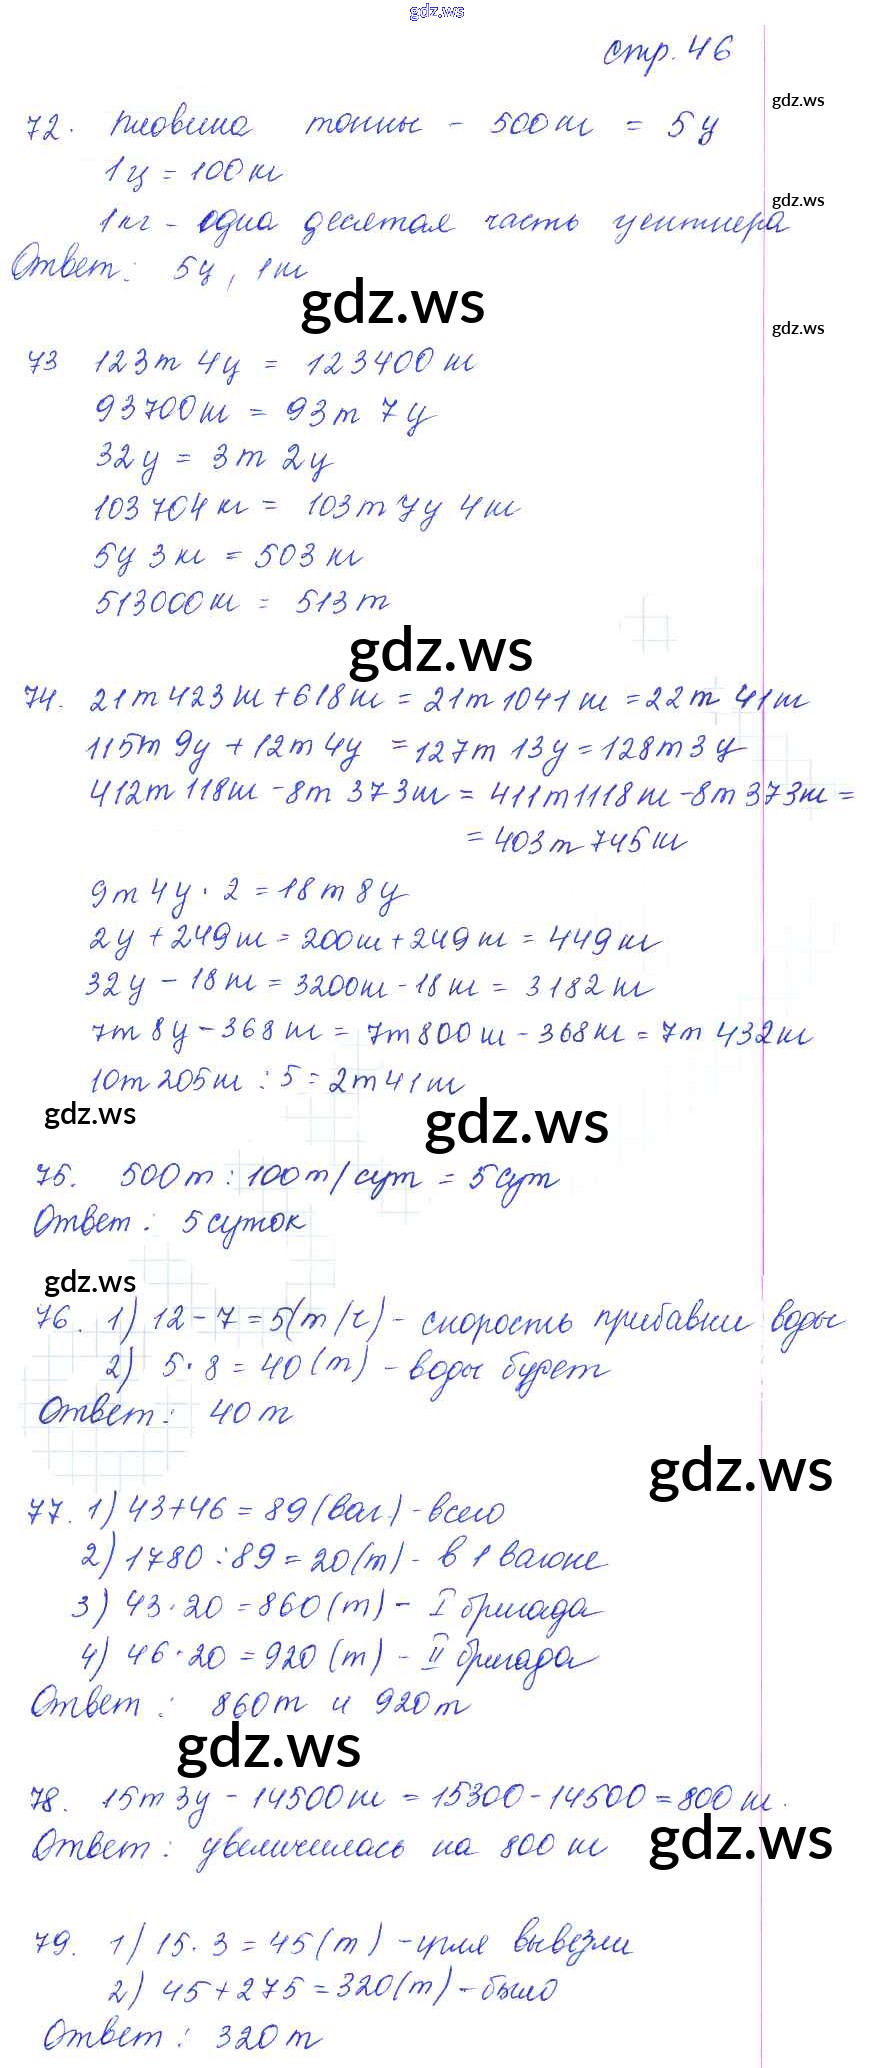 gdz.ws
стр. 46
gdz.ws
72. Половина тонны - 500 кг = 5 ц
1 ц = 100 кг
gdz.ws
1 кг - одна десятая часть центнера
Ответ: 5 ц, 1 кг
gdz.ws
gdz.ws
73 123 т 4 ц = 123400 кг
93700 кг = 93 т 7 ц
32 ц = 3 т 2 ц
103 704 кг = 103 т 7 ц 4 кг
5 ц 3 кг = 503 кг
513000 кг = 513 т
gdz.ws
74. 21 т 423 кг + 618 кг = 21 т 1041 кг = 22 т 41 кг
115 т 9 ц + 12 т 4 ц = 127 т 13 ц = 128 т 3 ц
412 т 118 кг - 8 т 373 кг = 411 т 1118 кг - 8 т 373 кг =
= 403 т 745 кг
9 т 4 ц · 2 = 18 т 8 ц
2 ц + 249 кг = 200 кг + 249 кг = 449 кг
32 ц - 18 кг = 3200 кг - 18 кг = 3182 кг
7 т 8 ц - 368 кг = 7 т 800 кг - 368 кг = 7 т 432 кг
10 т 205 кг : 5 = 2 т 41 кг
gdz.ws
gdz.ws
75. 500 т : 100 т/сут = 5 сут
Ответ: 5 суток
gdz.ws
76. 1) 12 - 7 = 5 (т/ч) - скорость прибавки воды
2) 5 · 8 = 40 (т) - воды будет
Ответ: 40 т
gdz.ws
77. 1) 43 + 46 = 89 (ваг.) - всего
2) 1780 : 89 = 20 (т) - в 1 вагоне
3) 43 · 20 = 860 (т) - I бригада
4) 46 · 20 = 920 (т) - II бригада
Ответ: 860 т и 920 т
gdz.ws
78. 15 т 3 ц - 14500 кг = 15300 - 14500 = 800 кг.
Ответ: увеличилась на 800 кг
gdz.ws
79. 1) 15 · 3 = 45 (т) - угля вывезли
2) 45 + 275 = 320 (т) - было
Ответ: 320 т